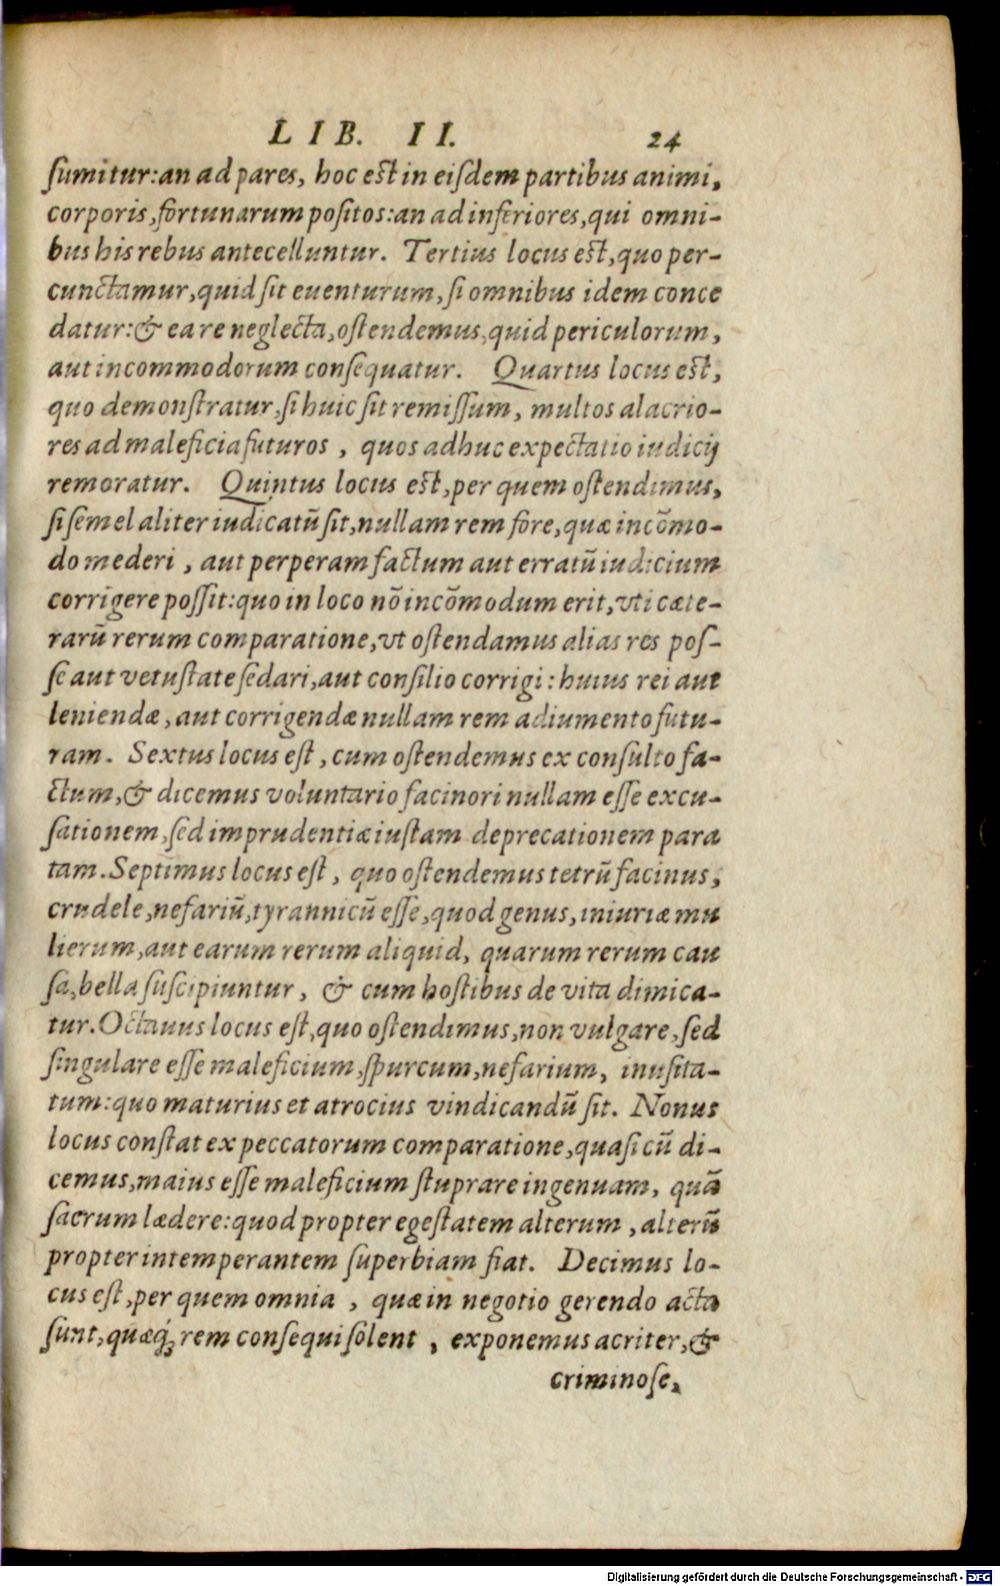 LIB. II. 24
ſumitur: an ad pares, hoc eſt in eiſdem partibus animi,
corporis, fortunarum poſitos: an ad inferiores, qui omni-
bus his rebus antecelluntur. Tertius locus eſt, quo per-
cunctamur, quid ſit euenturum, ſi omnibus idem conce
datur: & ea re neglecta, oſtendemus, quid periculorum,
aut incommodorum conſequatur. Quartus locus eſt,
quo demonſtratur, ſi huic ſit remiſſum, multos alacrio-
res ad maleficia futuros, quos adhuc expectatio iudicij
remoratur. Quintus locus eſt, per quem oſtendimus,
ſi ſemel aliter iudicatū ſit, nullam rem fore, quæ incōmo-
do mederi, aut perperam factum aut erratū iudicium
corrigere poſſit: quo in loco nō incōmodum erit, vti cæte-
rarū rerum comparatione, vt oſtendamus alias res poſ-
ſe aut vetuſtate ſedari, aut conſilio corrigi: huius rei aut
leniendæ, aut corrigendæ nullam rem adiumento futu-
ram. Sextus locus eſt, cum oſtendemus ex conſulto fa-
ctum, & dicemus voluntario facinori nullam eſſe excu-
ſationem, ſed imprudentiæ iuſtam deprecationem para
tam. Septimus locus eſt, quo oſtendemus tetrū facinus,
crudele, nefariū, tyrannicū eſſe, quod genus, iniuriæ mu
lierum, aut earum rerum aliquid, quarum rerum cau
ſa, bella ſuſcipiuntur, & cum hoſtibus de vita dimica-
tur. Octauus locus eſt, quo oſtendimus, non vulgare, ſed
ſingulare eſſe maleficium, ſpurcum, nefarium, inuſita-
tum: quo maturius et atrocius vindicandū ſit. Nonus
locus conſtat ex peccatorum comparatione, quaſi cū di-
cemus, maius eſſe maleficium ſtuprare ingenuam, quā
ſacrum lædere: quod propter egeſtatem alterum, alterū
propter intemperantem ſuperbiam fiat. Decimus lo-
cus eſt, per quem omnia, quæ in negotio gerendo acta
ſunt, quæq́; rem conſequi ſolent, exponemus acriter, &
criminoſe,
Digitalisierung gefördert durch die Deutsche Forschungsgemeinschaft - DFG